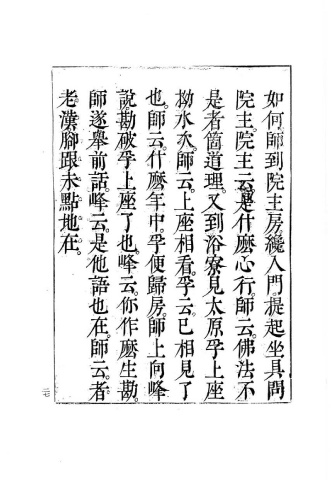 如何師到院主房纔入門提起坐具問
院主院主云是什麼心行師云佛法不
是者箇道理又到浴寮見太原孚上座
拗水次師云上座相看孚云已相見了
也師云什麼年中孚便歸房師上向峰
說勘破孚上座了也峰云你作麼生勘
師遂舉前話峰云是他語也在師云者
老漢腳跟未點地在